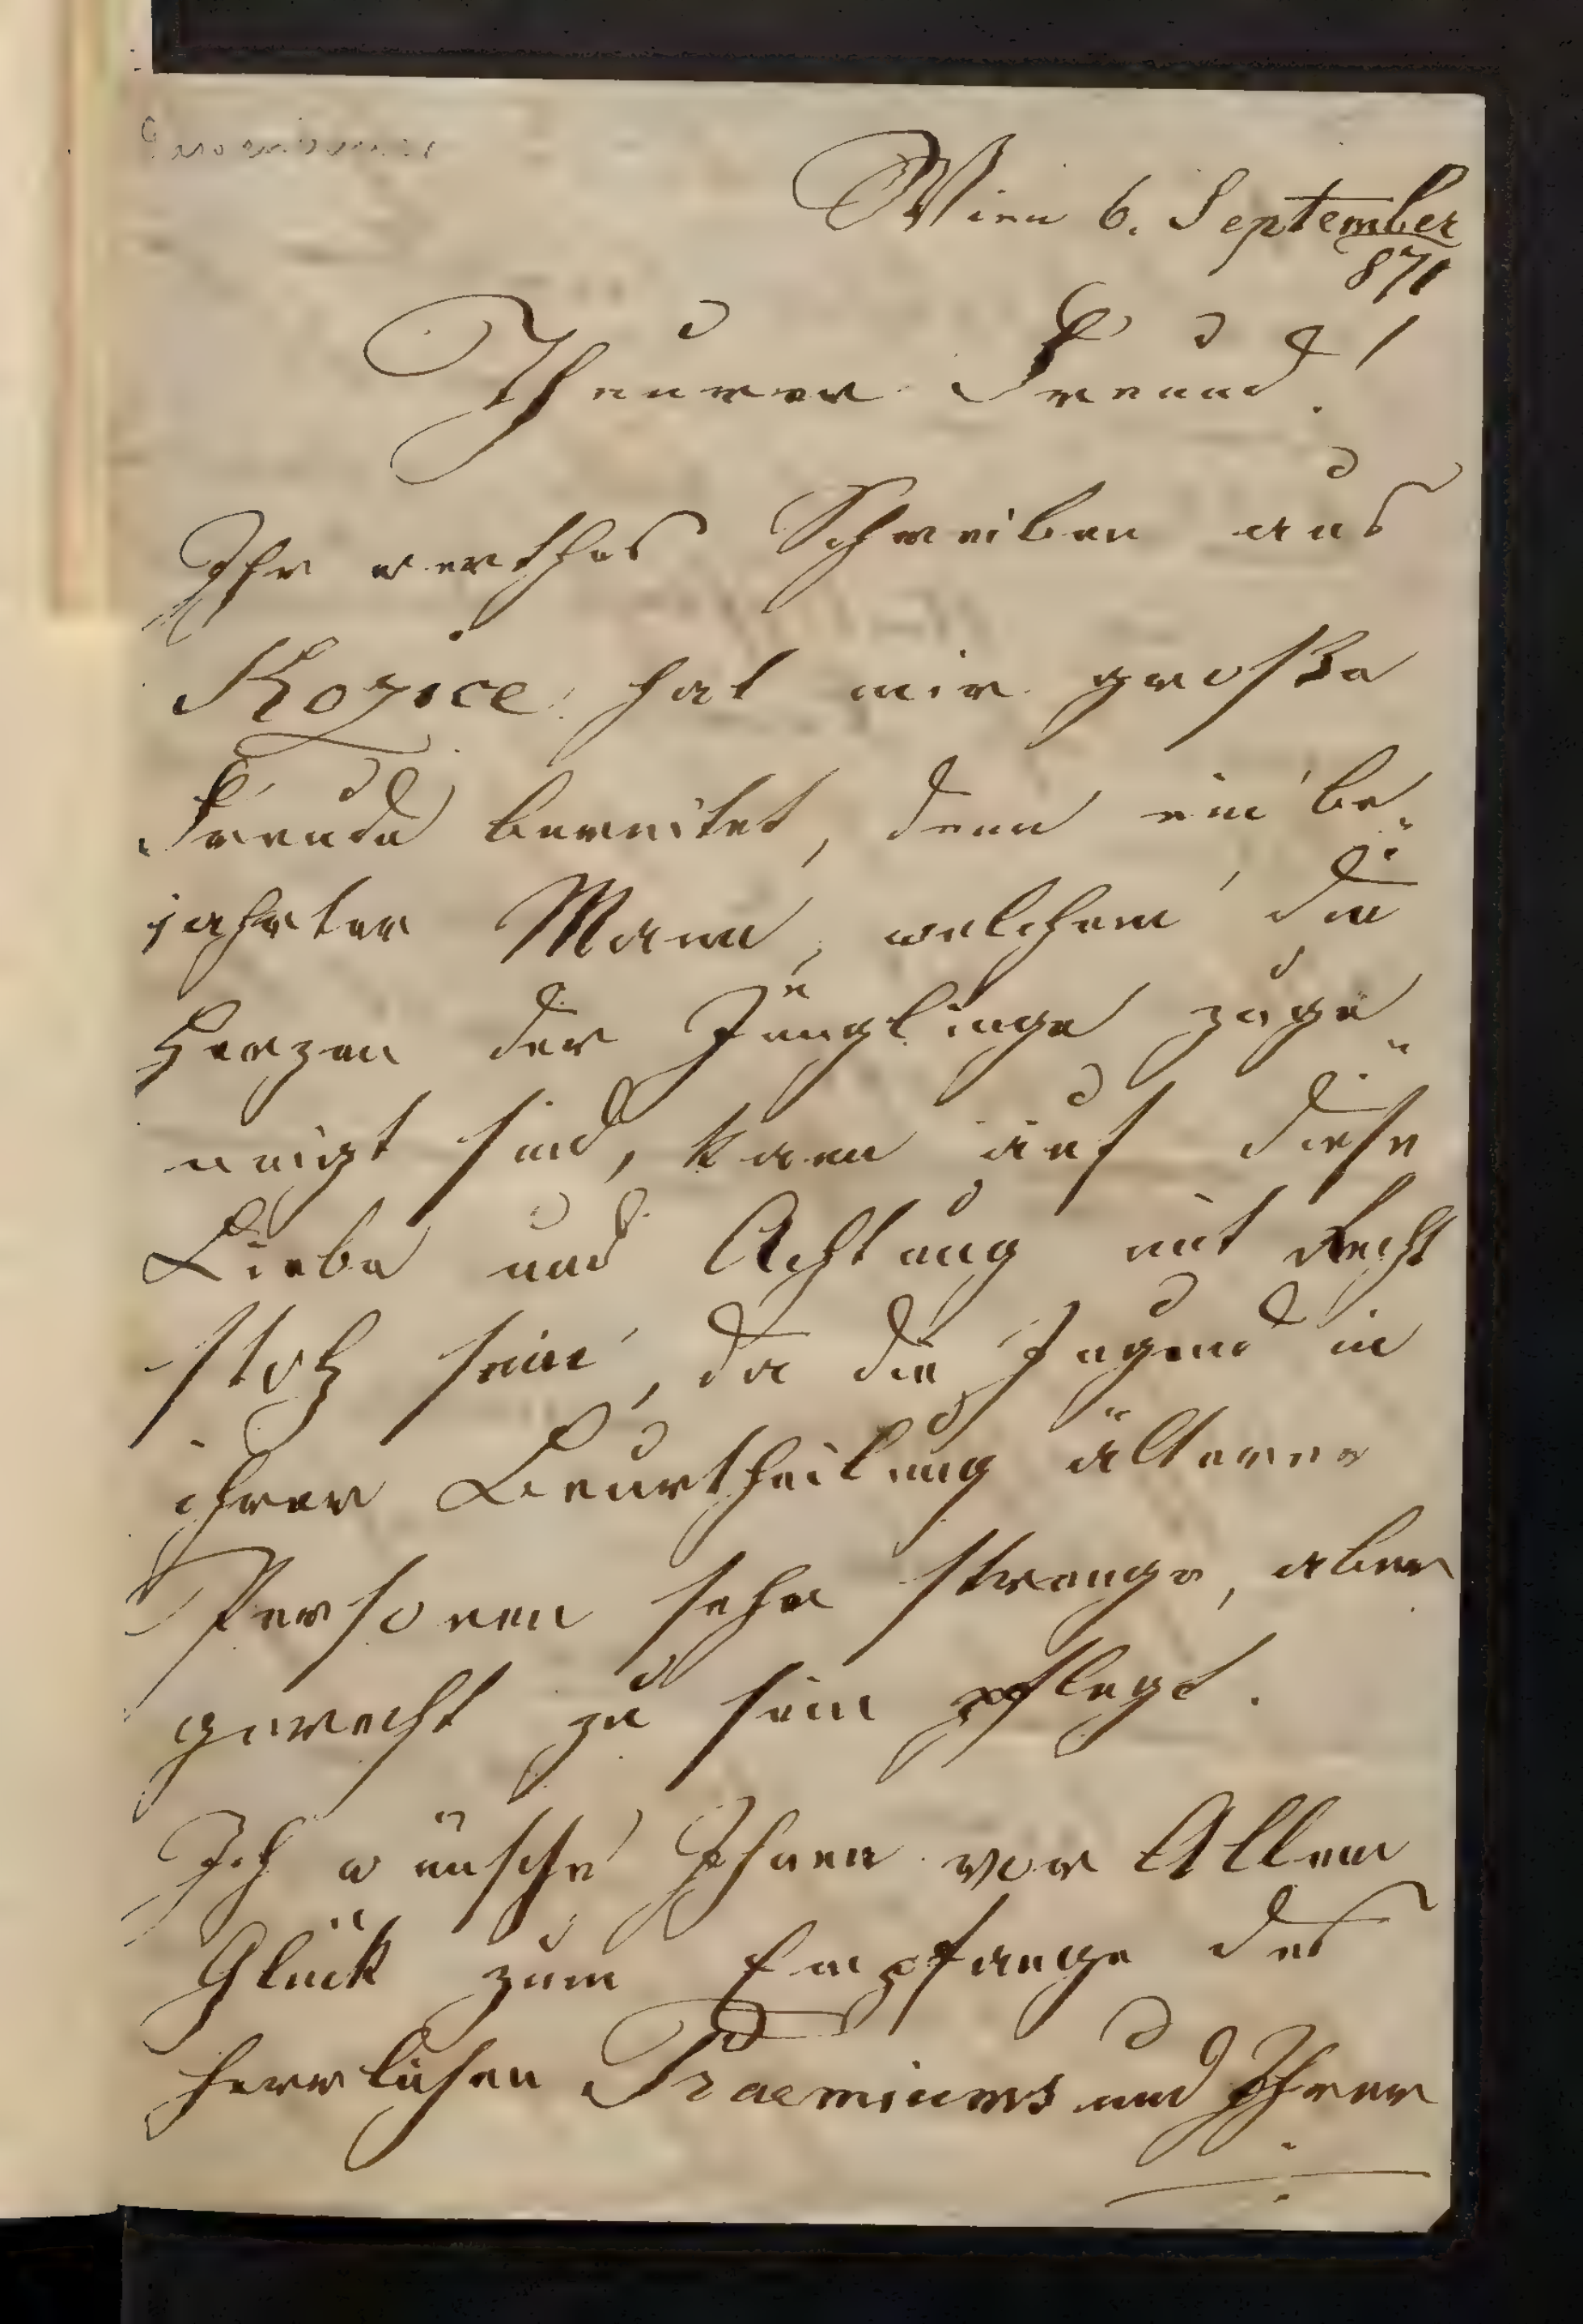 Wien 6. September
871
Theurer Freund!
Ihr werthes Schreiben aus
Kožice hat mir große
Freude bereitet, denn ein be„
jahrter Mann, welchem die
Herzen der Jünglinge zuge„
neigt sind, kann auf diese
Liebe und Achtung mit Recht
stolz sein, da die Jugend in
ihrer Beurtheilung älterer
Personen sehr strenge, aber
gerecht zu sein pflegt.
Ich wünsche Ihnen vor Allem
Glück zum Empfange des
herrlichen Praemiums und Ihrer